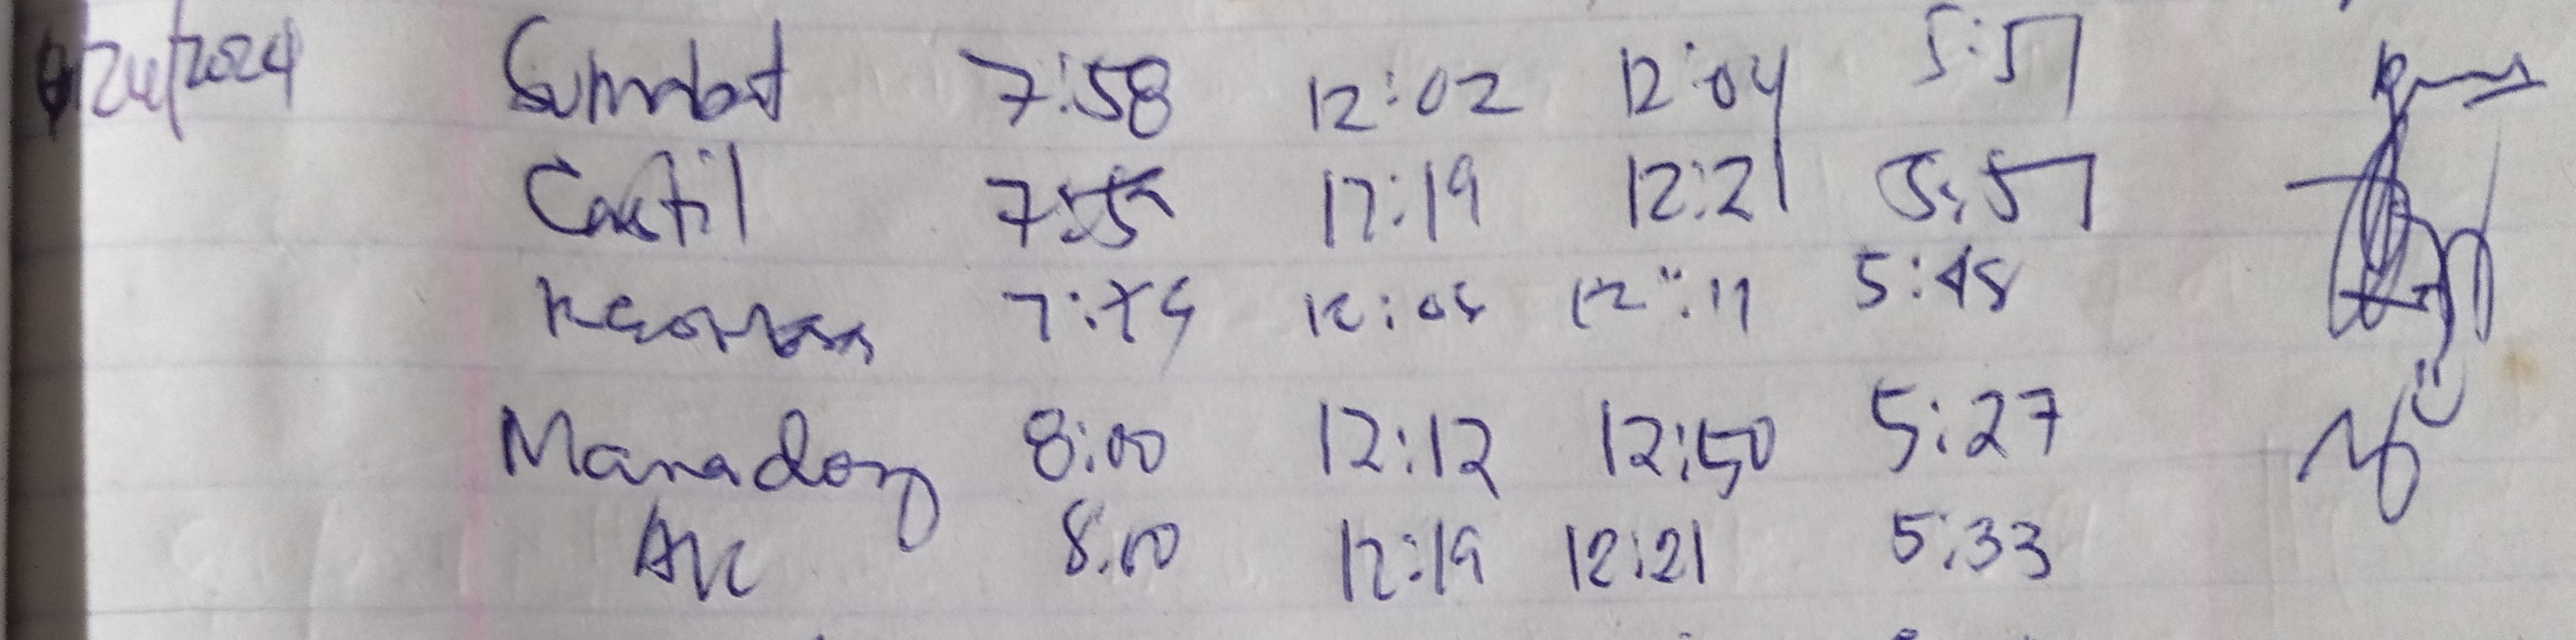 /24/2024 Sumabat 7:58 12:02 12:04 5:57
Castil 7:55 12:19 12:21 5:57
12:05 12:11 5:45
Manadong 8:00 12:12 12:50 5:27
8:00 12:19 12:21 5:33